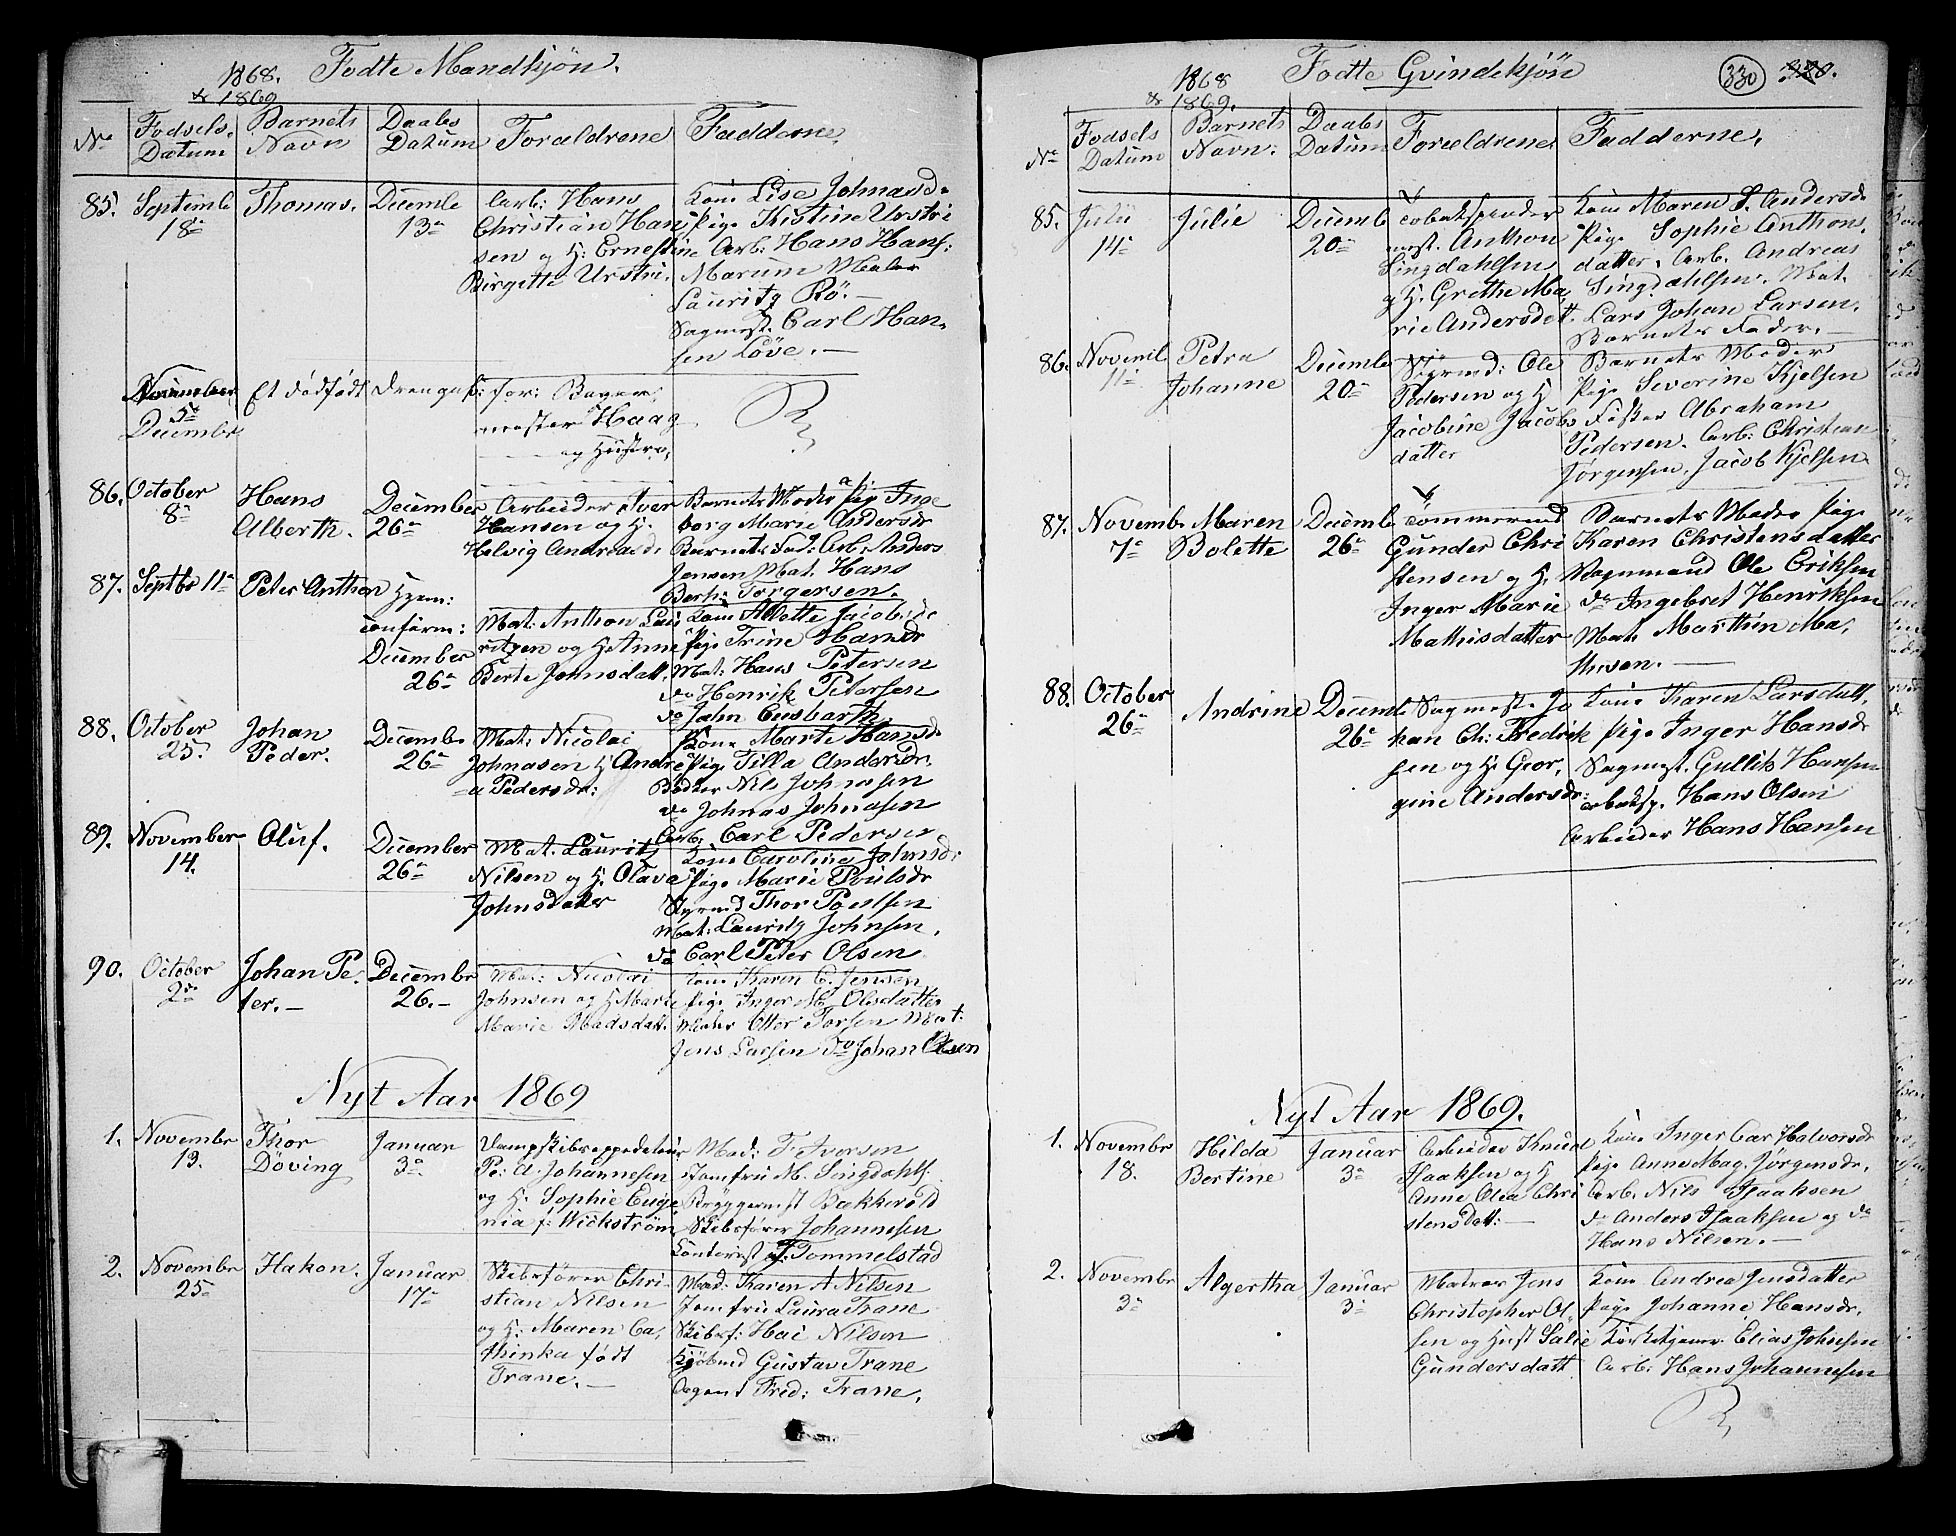 1868. Fødte Mandkjøn.
& 1869
No
Fødsels-
Datum
Barnets
Navn
Daabs
Datum
Forældrene
Fadderne
85. Septemb
18de
Thomas.
Decembe
13de
Arb: Hans
Christian Han
sen og H: Ernestine
Birgitte Urstri.
Kone Lise Johnasd.
Pige Kistine Urstri
Arb: Hans Hans:
Marum Maler
Lauritz Rö. —
Sagmest. Carl Han-
sen Löve. —
5te
Decembr
Et dødfødt Drengeb: for: Bager,
mester Haag
og Hustru,
86. October
8de
Hans
Alberth.
December
26de
Arbeider Iver
Hansen og H.
Helvig Andreasd:
Barnets Moder Pig. Inge
borg Marie Andersdr
Barnets Fad: Arb: Anders
Jensen Mat. Hans
Berth: Torgersen.
87. Septbr 11te
Peter Anthon
Hjem:
conferm:
December
26de
Mat. Anthon Lau
ritzen og H Anne
Berte Johnsdatt.
Kone Alette Jacobsdr
Pige Trine Hansdr
Mat: Hans Petersen
do Henrik Petersen
do John Cusbarth
88. October
25.
Johan
Peder.
Decembe
26de
Mat: Nicolai
Johnasen H Andre
a Pedersdr:
Kone Marte Hansdr
Pige Tilla Andersdr.
Bødker Nils Johnasen
do Johnas Johnasen
Arb: Carl Pedersen
89. November
14.
Oluf.
December
26de
Mat. Lauritz
Nilsen og H. Olava
Johnsdatter
Kone Caroline Johnsdr
Pige Marie Poulsdr
Styrmd Thor Poulsen
Mat: Lauritz Johnsen,
do Carl Peter Olsen
90. October
2den
Johan Pe-
ter. —
Decembr
26. —
Mat: Nicolai
Johnsen og H Marte
Marie Madsdatt.
Kone Karen C. Jensen
Pige Inger M. Olesdatter
Maler Otter Torsen Mat:
Jens Larsen Do Johan Olsen
Nyt Aar 1869
1. Novembr
13.
Thor
Döving
Januar
3de
Dampskibsexpediteur
Pe: A. Johannesen
og H. Sophie Euge
nia f: Wickström
Mad: F. Iversen
Jomfru M. Lingdahls
Bryggermest Bækkevold
Skibsfører Johannesen
Contorist J. Tommelstad
2. Novembr
25
Hakon.
Januar
17de
Skibsfører Chri-
stian Nilsen
og H. Maren Ca,
thinka født
Trane. —
Mad: Karen A Nilsen
Jomfru Laura Trane
Skibsf: Hai Nilsen
Kjöbmd Gustav Trane
Agent Fred: Trane,
1868 Fødte Qvindekjön
& 1869.
330
No
Fødsels
Datum
Barnets
Navn:
Daabs
Datum
Forældrene
Fadderne,
85. Julii
14de
Julie
Decemb
20de
Tobakspinder
mest. Anthon
Lingdahlsen
og H. Grethe Ma,
rie Andersdatt.
Kone Maren S. Andersdr
Pige Sophie Anthons,
datter, Arb. Andreas
Lingdahlsen, Mat.
Lars Johan Larsen,
Barnets Fader. —
86. Novemb
11te
Petra
Johanne
Decembe
20de
Styrmd: Ole
Pedersen og H
Jacobine Jacobs
datter
Barnets Moder
Pige Severine Kjelsen
Fisker Abraham
Pedersen. Arb: Christian
Jørgensen, Jacob Kjelsen
87. Novembe
7de
Maren
Bolette
Decembe
26de
Tømmermd
Gunder Chri
stensen og H.
Inger Marie
Mathisdatter
Barnets Moder Pige
Karen Christensdatter
Vognmand Ole Eriksen
do Ingebret Henriksen
Mat: Marthin Ma,
thisen. —
88. October
26de
Andrine
Decembe
26de
Sagmest. Jo
han Ch: Fredrik
sen og H. Geor,
gine Andersdr:
Kone Karen Larsdatt,
Pige Inger Hansdr
Sagmest. Gullik Hansen
Tobaksp. Hans Olsen
Arbeider Hans Hansen
Nyt Aar 1869.
1. Novembr
18.
Hilda
Bertine
Januar
3de
Arbeider Knud
Isaaksen og H
Anne Olea Chri
stensdatt: —
Kone Inger Car Halvorsdr
Pige Anne Mag. Jørgensdr,
Arb. Nils Isaaksen
do Anders Isaaksen og do
Hans Nilsen. —
2. Novembr
3de
Algertha
Januar
3de
Matros Jens
Christopher Ol-
sen og Hust Salie
Gundersdatt
Kone Andrea Jensdatter
Pige Johanne Hansdr,
Kirketjener Elias Johnsen
Arb: Hans Johannesen